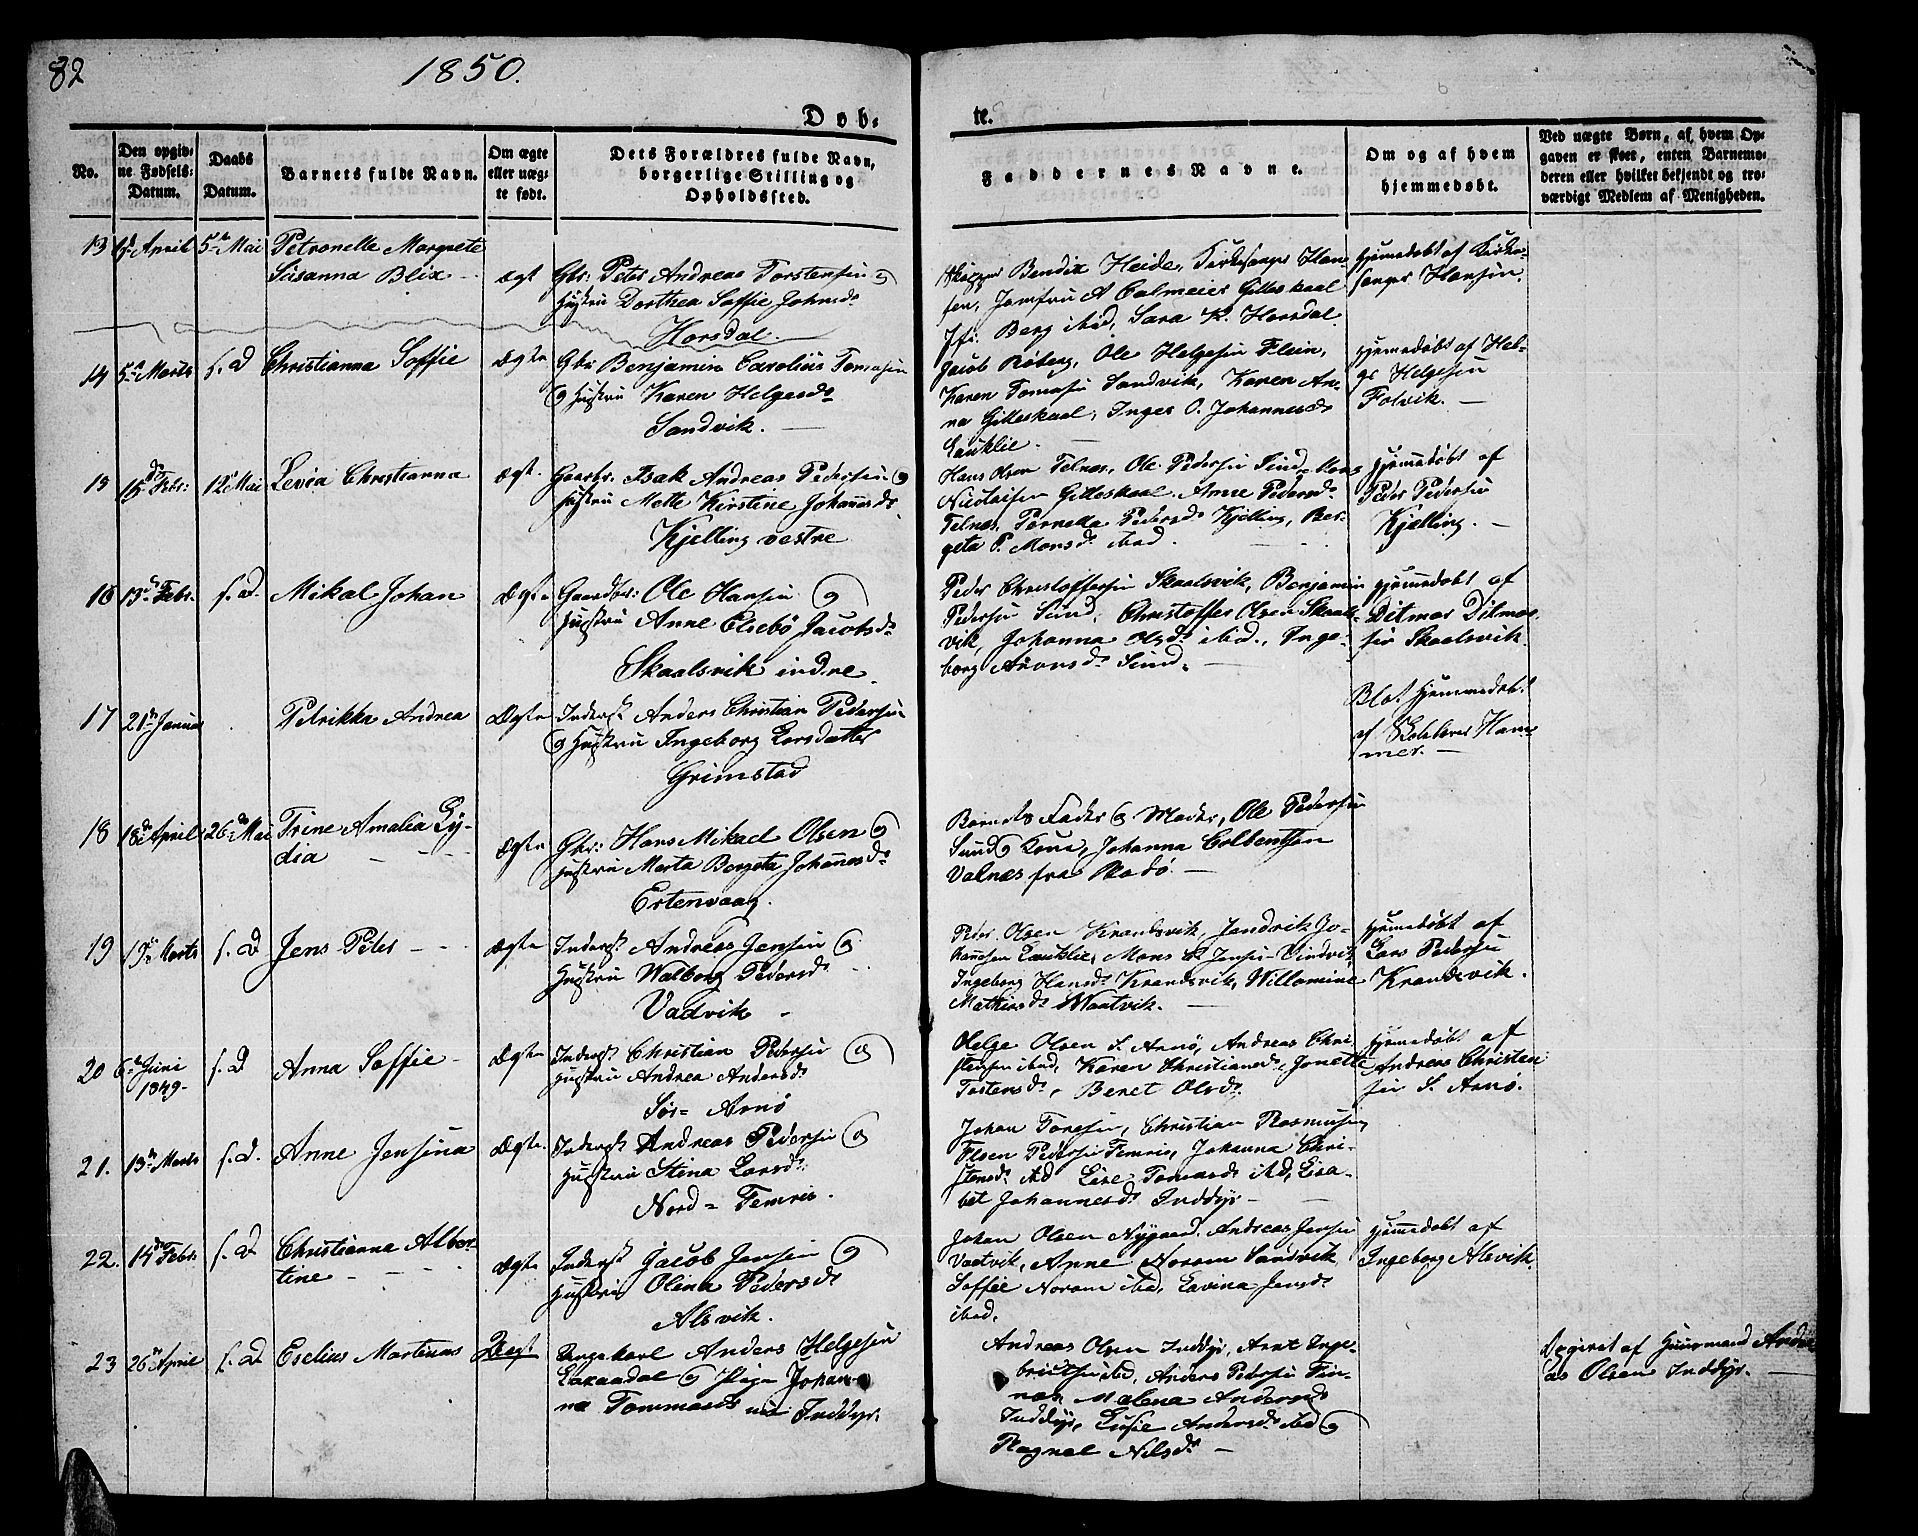 82
1850.
Døb-
te.
No.
Den opgiv-
ne Fødsels-
Datum.
Daabs
Datum.
Barnets fulde Navn.
Om ægte
eller uæg-
te født.
Dets Forældres fulde Navn,
borgerlige Stilling og
Opholdssted.
Faddernes Navne.
Om og af hvem
hjemmedøbt.
Ved uægte Børn, af hvem Op-
gaven er skeet, enten Barnemo-
deren eller hvilket bekjendt og tro-
værdigt Medlem af Menigheden.
13 April 5te Mai Petronelle Margrete
Susanna Blix
Ægt Gbr: Peter Andreas Torstensen og
Hustru Dorthea Soffie Johnsdr
Horsdal.
Bendix Heide, Kirkesanger Han-
sen, Jomfru A Colmeier Gilleskaal
Jfr: Berg ibid, Sara K. Horsdal.
Hjemmedøbt af Kirke-
sanger Hansen.
14 5te Marts s. D Christianna Soffie
Ægte Gbr Benjamin Carolius Tomasen
og Hustru Karen Helgesdr
Sandvik.
Jacob Røberg, Ole Helgesen Flein,
Karen Tomasen Sandvik, Karen An-
na Gilleskaal, Inger O. Johannesdr
Lauklie.
Hjemmedøbt af Hel-
ge Helgesen
Folvik.
15 15de Febr: 12te Mai Levia Christianna
Ægt. Gaardbr: Isak Andreas Pedersen og
Hustru Mette Kirstine Johannesdr
Kjelling vestre
Hans Olsen Telnæs, Ole Pedersen Sund, Hans
Nicolaisen Gilleskaal. Anne Pedersdr
Telnæs, Pernella Pedersdr Kjelling, Ber-
geta P. Monsdr ibid.
Hjemmedøbt af
Peder Pedersen
Kjelling.
16 13de Febr. s. D. Mikal Johan
Ægte Gaardbr: Ole Hansen og
Hustru Anne Elsebø Jacobsdr
Skaalsvik indre.
Peder Christoffersen Skaalsvik, Benjamin
Pedersen Sund, Christoffer Olsen Skaals-
vik, Johanna Olsdr ibid., Inge-
borg Aronsdr Sund.
Hjemmedøbt af
Ditmar Ditmar-
sen Skaalsvik.
17 21de Januar Petrikka Andrea
Ægte Inderst Anders Christian Pedersen
og Hustru Ingeborg Larsdatter
Grimstad
Blot hjemmedøbt
af Skolelærer Ham-
mer.
18 18de April 26de Mai Trine Amalia Ly-
dia
Ægte Gbr: Hans Mikael Olsen og
Hustru Marta Bergeta Johannesdr
Ertenvaag.
Barnets Fader og Moder, Ole Pedersen
Sund og Kone, Johanna Colbentsen
Valnæs fra Bodø.
19 19de Marts s. D Jens Peter
Ægte Inderst Andreas Jensen og
Hustru Walborg Pedersdr
Vadvik
Peder Olsen Krandsvik, Hendrik Jo-
hannesen Lauklie, Mons P. Jensen Vindvik,
Ingeborg Hansdr Krandsvik, Willomine
Mathiasdr Waatvik.
Hjemmedøbt af
Lars Pedersen
Krandsvik.
20 6te Juni
1849.
s. D Anna Soffie
Ægte Inderst Christian Pedersen og
Hustru Andrea Andersdr
Sør- Arnø
Helge Olsen S. Arnø, Andreas Chri-
stensen ibid, Karen Christiansdr, Jonette
Tostensdr, Beret Olsdr.
Hjemmedøbt af
Andreas Christen
sen S. Arnø.
21. 13de Marts s. D. Anne Jensina
Ægte. Inderst Andreas Pedersen og
Hustru Stina Larsdr
Nord- Femris.
Johan Toresen, Christian Rasmusen
Elsen Pedersen Femris, Johanna Chri-
stensdr ibd Lise Tomasdr ibd, Lisa-
bet Johannesdr Inddyr
22. 14de Febr: s. D Christianna Alber-
tine
Ægte Inderst Jacob Jensen og
Hustru Olina Pedersdr
Alsvik.
Johan Olsen Nygaard, Andreas Jensen
Vaatvik, Anne Norum Sandvik
Soffie Norum ibid, Lavina Jensdr
ibid.
Hjemmedøbt af
Ingeborg Alsvik.
23 26de April s. D Eselius Martinus
Uægt Ungekarl Anders Helgesen
og Pige Johan-
na Tommasdr Inddyr.
Andreas Olsen Inddyr, Arnt Inge-
brictsen ibid, Anders Pedersen Fin-
næs, Malena Andersdr
Inddyr, Lusie Andersdr ibid og
Ragnal Nilsdr
Opgivet af Huusmand Andre
as Olsen Inddyr.